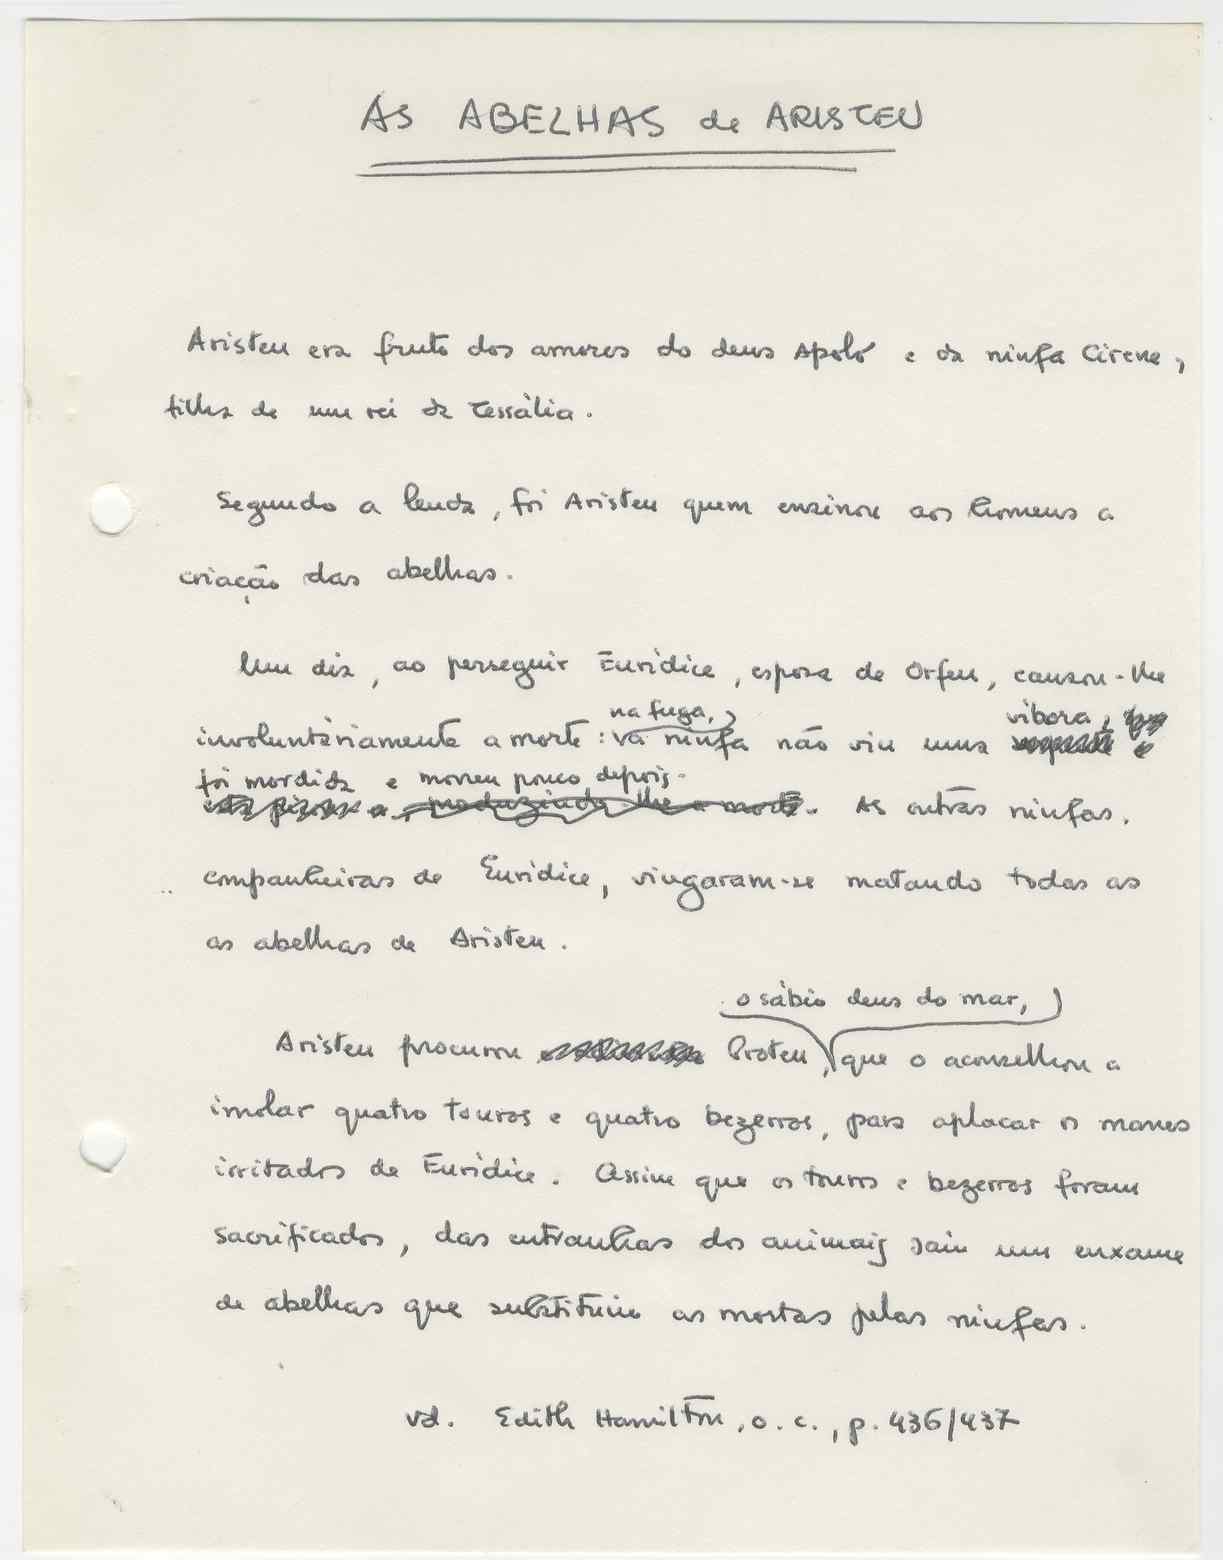 AS ABELHAS de ARISTEU
Aristeu era fruto dos amores do deus Apolo e da ninfa Cirene,
filha de um rei da Tessália.
Segundo a lenda, foi Aristeu quem ensinou aos homens a
criação das abelhas.
Um dia, ao perseguir Eurídice, esposa de Orfeu, causou-lhe
na fuga, víbora,
involuntàriamente a morte: a ninfa não viu uma e
foi mordida e morreu pouco depois.
As outras ninfas,
companheiras de Eurídice, vingaram-se matando todas as
as abelhas de Aristeu.
o sábio deus do mar,
Aristeu procurou Proteu, que o aconselhou a
imolar quatro touros e quatro bezerros, para aplacar os manes
irritados de Eurídice. Assim que os touros e bezerros foram
sacrificados, das entranhas dos animais saiu um enxame
de abelhas que substituiu as mortas pelas ninfas.
vd. Edith Hamilton, o. c., p. 436/437